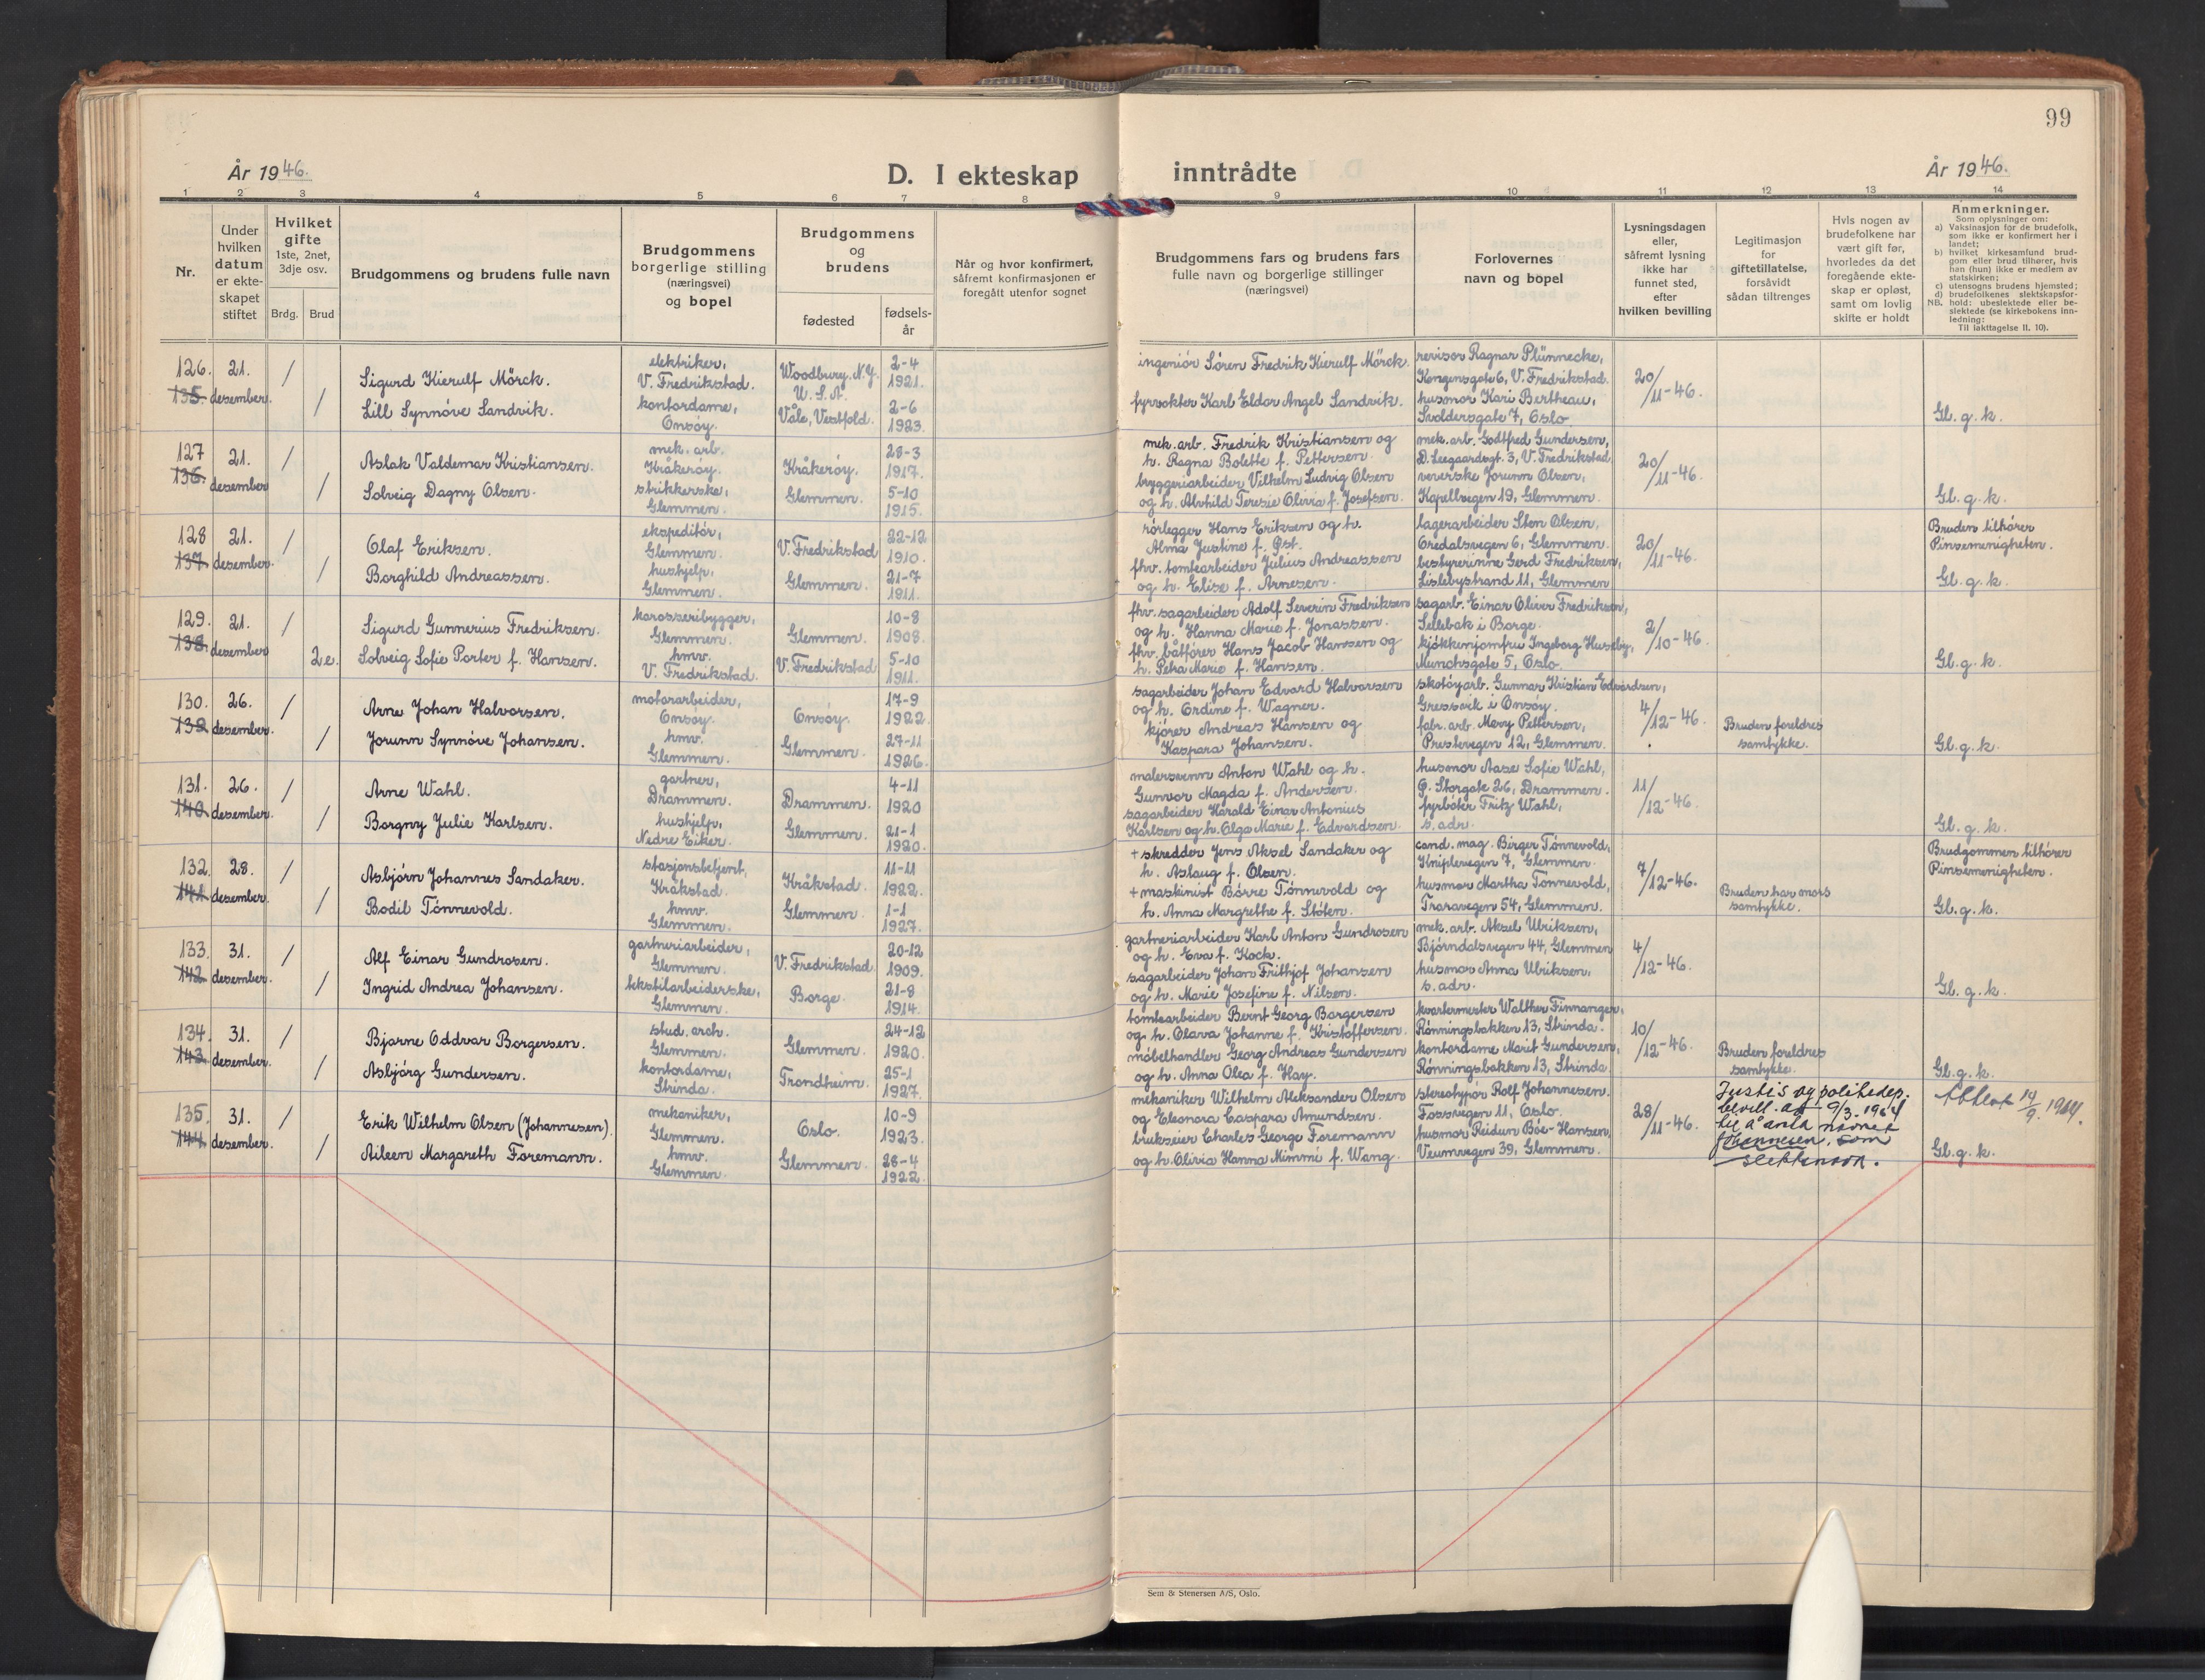 99
År 1946.
D. I ekteskap inntrådte
År 1946.
1 2 3 4 5 6 7 8 9 10 11 12 13 14
Nr.
Under hvilken datum er ekte-skapet stiftet
Hvilket gifte
1ste, 2net, 3dje osv.
Brdg. Brud
Brudgommens og brudens fulle navn
Brudgommens borgerlige stilling (næringsvei) og bopel
Brudgommens og brudens
fødested
fødsels-år
Når og hvor konfirmert, såfremt konfirmasjonen er foregått utenfor sognet
Brudgommens fars og brudens fars fulle navn og borgerlige stillinger (næringsvei)
Forlovernes navn og bopel
Lysningsdagen eller, såfremt lysning ikke har funnet sted, efter hvilken bevilling
Legitimasjon for giftetillatelse, forsåvidt sådan tiltrenges
Hvis nogen av brudefolkene har vært gift før, hvorledes da det foregående ekte-skap er opløst, samt om lovlig skifte er holdt
Anmerkninger.
Som oplysninger om:
a) Vaksinasjon for de brudefolk, som ikke er konfirmert her i landet;
b) hvilket kirkesamfund brud-gom eller brud tilhører, hvis han (hun) ikke er medlem av statskirken;
c) utensogns brudens hjemsted;
d) brudefolkenes slektskapsfor-hold: ubeslektede eller be-slektede (se kirkebokens inn-ledning:
NB.
Til iakttagelse II. 10).
126. 135. 21. desember. / /
Sigurd Kierulf Mörck.
Lill Synnöve Sandvik.
elektriker, V. Fredrikstad.
kontordame, Onsöy.
Woodbury. N.Y. U.S.A.
Våle, Vestfold.
2-4 1921.
2-6 1923.
ingeniör Sören Fredrik Kierulf Mörck.
fyrvokter Karl Eldor Angel Sandvik.
revisor Ragnar Plünnecke,
Kongensgate 6, V. Fredrikstad.
husmor Kari Bertheau,
Svoldersgate 7, Oslo
20/11-46.
Gl. g. k.
127 136. 21. desember / /
Aslak Valdemar Kristiansen.
Solveig Dagny Olsen.
mek. arb. Kråkeröy.
strikkerske, Glemmen.
Kråkeröy.
Glemmen.
28-3 1917.
5-10 1915.
mek. arb. Fredrik Kristiansen og
h. Ragna Bolette f. Pettersen.
bryggeriarbeider Vilhelm Ludvig Olsen
og h. Alvhild Teresie Olivia f. Josefsen.
mek. arb. Godtfred Gundersen,
D. Leegaardsgt. 3, V. Fredrikstad
veverske Jorunn Olsen,
Kapellvegen 19, Glemmen.
20/11-46.
Gl. g. k.
128 137 21. desember. / /
Olaf Eriksen.
Borghild Andreassen.
ekspeditör, Glemmen.
hushjelp, Glemmen.
V. Fredrikstad
Glemmen.
22-12 1910.
21-7 1911.
rörlegger Hans Eriksen og h.
Alma Justine f. Pst.
fhv. tomtearbeider Julius Andreassen
og h. Elise f. Arnesen.
lagerarbeider Sten Olsen,
Oredalsvegen 6, Glemmen.
bestyrerinne Gerd Fredriksen,
Lislebystrand 11, Glemmen
20/11-46.
Bruden tilhører
Pinsemenigheten.
Gl. g. k.
129. 138. 21. desember / 2e.
Sigurd Gunnerius Fredriksen.
Solveig Sofie Porter f. Hansen.
karosseribygger, Glemmen.
hmv. V. Fredrikstad.
Glemmen.
V. Fredrikstad
10-8 1908.
5-10 1911.
fhv. sagarbeider Adolf Severin Fredriksen
og h. Hanna Marie f. Jonassen.
fhv. båtförer Hans Jacob Hanssen og
h. Petra Marie f. Hansen.
sagarb. Einar Oliver Fredriksen,
Sellebak i Borge.
kjökkenjomfru Ingeborg Huseby,
Munchsgate 5, Oslo.
2/10-46.
Gl. g. k.
130. 139 26. desember. / /
Arne Johan Halvorsen.
Jorunn Synnöve Johansen.
motorarbeider, Onsöy.
hmv. Glemmen.
Onsöy.
Glemmen.
17-9 1922.
27-11 1926.
sagarbeider Johan Edvard Halvorsen
og h. Ordine f. Wagner.
kjörer Andreas Hansen og
Kaspara Johansen.
skotöyarb. Gunnar Kristian Edvardsen,
Gressvik i Onsöy.
fabr. arb. Mary Pettersen,
Prestevegen 12, Glemmen.
4/12-46.
Bruden foreldres
samtykke.
Gl. g. k.
131. 140 26. desember. / /
Arne Wahl.
Borgny Julie Karlsen.
gartner, Drammen.
hushjelp, Nedre Eiker.
Drammen.
Glemmen.
4-11 1920
21-1 1920.
malersvenn Anton Wahl og h.
Gunvor Magda f. Andersen.
sagarbeider Harald Einar Antonius
Karlsen og h. Olga Marie f. Edvardsen.
husmor Aase Sofie Wahl,
Ö. Storgate 26, Drammen.
fyrböter Fritz Wahl,
s. adr.
11/12-46.
Gl. g. k.
132. 141 28. desember. / /
Asbjörn Johannes Sandaker.
Bodil Tönnevold.
stasjonsbetjent, Kråkstad.
hmv. Glemmen.
Kråkstad.
Glemmen.
11-11 1922.
1-1 1927.
+ skredder Jens Aksel Sandaker og
h. Aslaug f. Olsen.
+ maskinist Börre Tönnevold og
h. Anna Margrethe f. Stöten.
cand. mag. Birger Tönnevold,
Kniplevegen 7, Glemmen.
husmor Martha Tönnevold,
Traravegen 54, Glemmen.
7/12-46.
Bruden har mors
samtykke.
Brudgommen tilhører
Pinsemenigheten.
Gl. g. k.
133. 142. 31. desember. / /
Alf Einar Gundrosen.
Ingrid Andrea Johansen.
gartneriarbeider, Glemmen.
tekstilarbeiderske, Glemmen.
V. Fredrikstad.
Borge.
20-12 1909.
21-8 1914.
gartneriarbeider Karl Anton Gundrosen
og h. Eva f. Kock.
sagarbeider Johan Frithjof Johansen
og h. Marie Josefine f. Nilsen.
mek. arb. Aksel Ulriksen,
Björndalsvegen 44, Glemmen
husmor Anna Ulriksen.
s. adr.
4/12-46.
Gl. g. k.
134. 143. 31. desember. / /
Bjarne Oddvar Borgersen.
Asbjörg Gundersen.
stud. arch. Glemmen.
kontordame, Strinda.
Glemmen.
Trondheim.
24-12 1920.
25-1 1927.
tomtearbeider Bernt Georg Borgersen
og h. Olava Johanne f. Kristoffersen.
möbelhandler Georg Andreas Gundersen
og h. Anna Olea f. Hay.
kvartermester Walther Finnanger,
Rönningsbakken 13, Strinda.
kontordame Marit Gundersen,
Rönningsbakken 13, Strinda.
10/12-46.
Bruden foreldres
samtykke.
Gl. g. k.
135. 144. 31. desember. / /
Erik Wilhelm Olsen (Johannesen).
Aileen Margareth Foremann.
mekaniker, Glemmen.
hmv. Glemmen.
Oslo.
Glemmen.
10-9 1923.
28-4 1922.
mekaniker Wilhelm Aleksander Olsen
og Eleonora Caspara Amundsen.
brukseier Charles George Foremann
og h. Olivia Hanna Mimmi f. Wang.
stereotypör Rolf Johannesen.
Fossvegen 11, Oslo.
husmor Reidun Böe-Hansen,
Veumvegen 39, Glemmen.
28/11-46.
Justis og politidep.
bevill. av 9/3. 1964
til å anta navnet
Johannesen, som
slektsnavn.
Gl. g. k.
Sem & Stenersen A/S, Oslo.